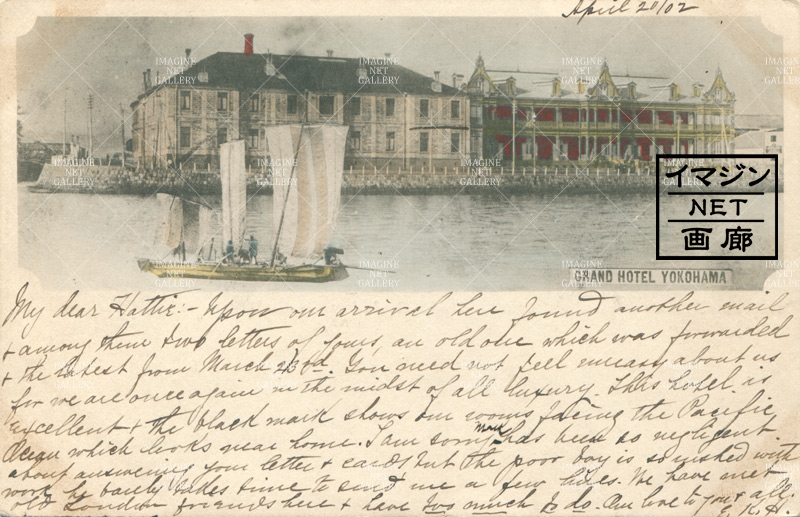 April 20/02
IMAGINE NET GALLERY
イマジン
NET
画廊
GRAND HOTEL YOKOHAMA
My dear Hattie:- Upon our arrival here found another mail
& among them two letters of yours, an old one which was forwarded
& the latest from March 23rd. You need not feel uneasy about us
for we are once again in the midst of all luxury. This hotel is
excellent & the black mark shows our rooms facing the Pacific
Ocean which looks near home. I am sorry has been so negligent
about answering your letter & cards but the poor boy is so rushed with
work he barely takes time to send me a few lines. We have met
old London friends here & have too much to do. Our love to you & all.
E. K. H.